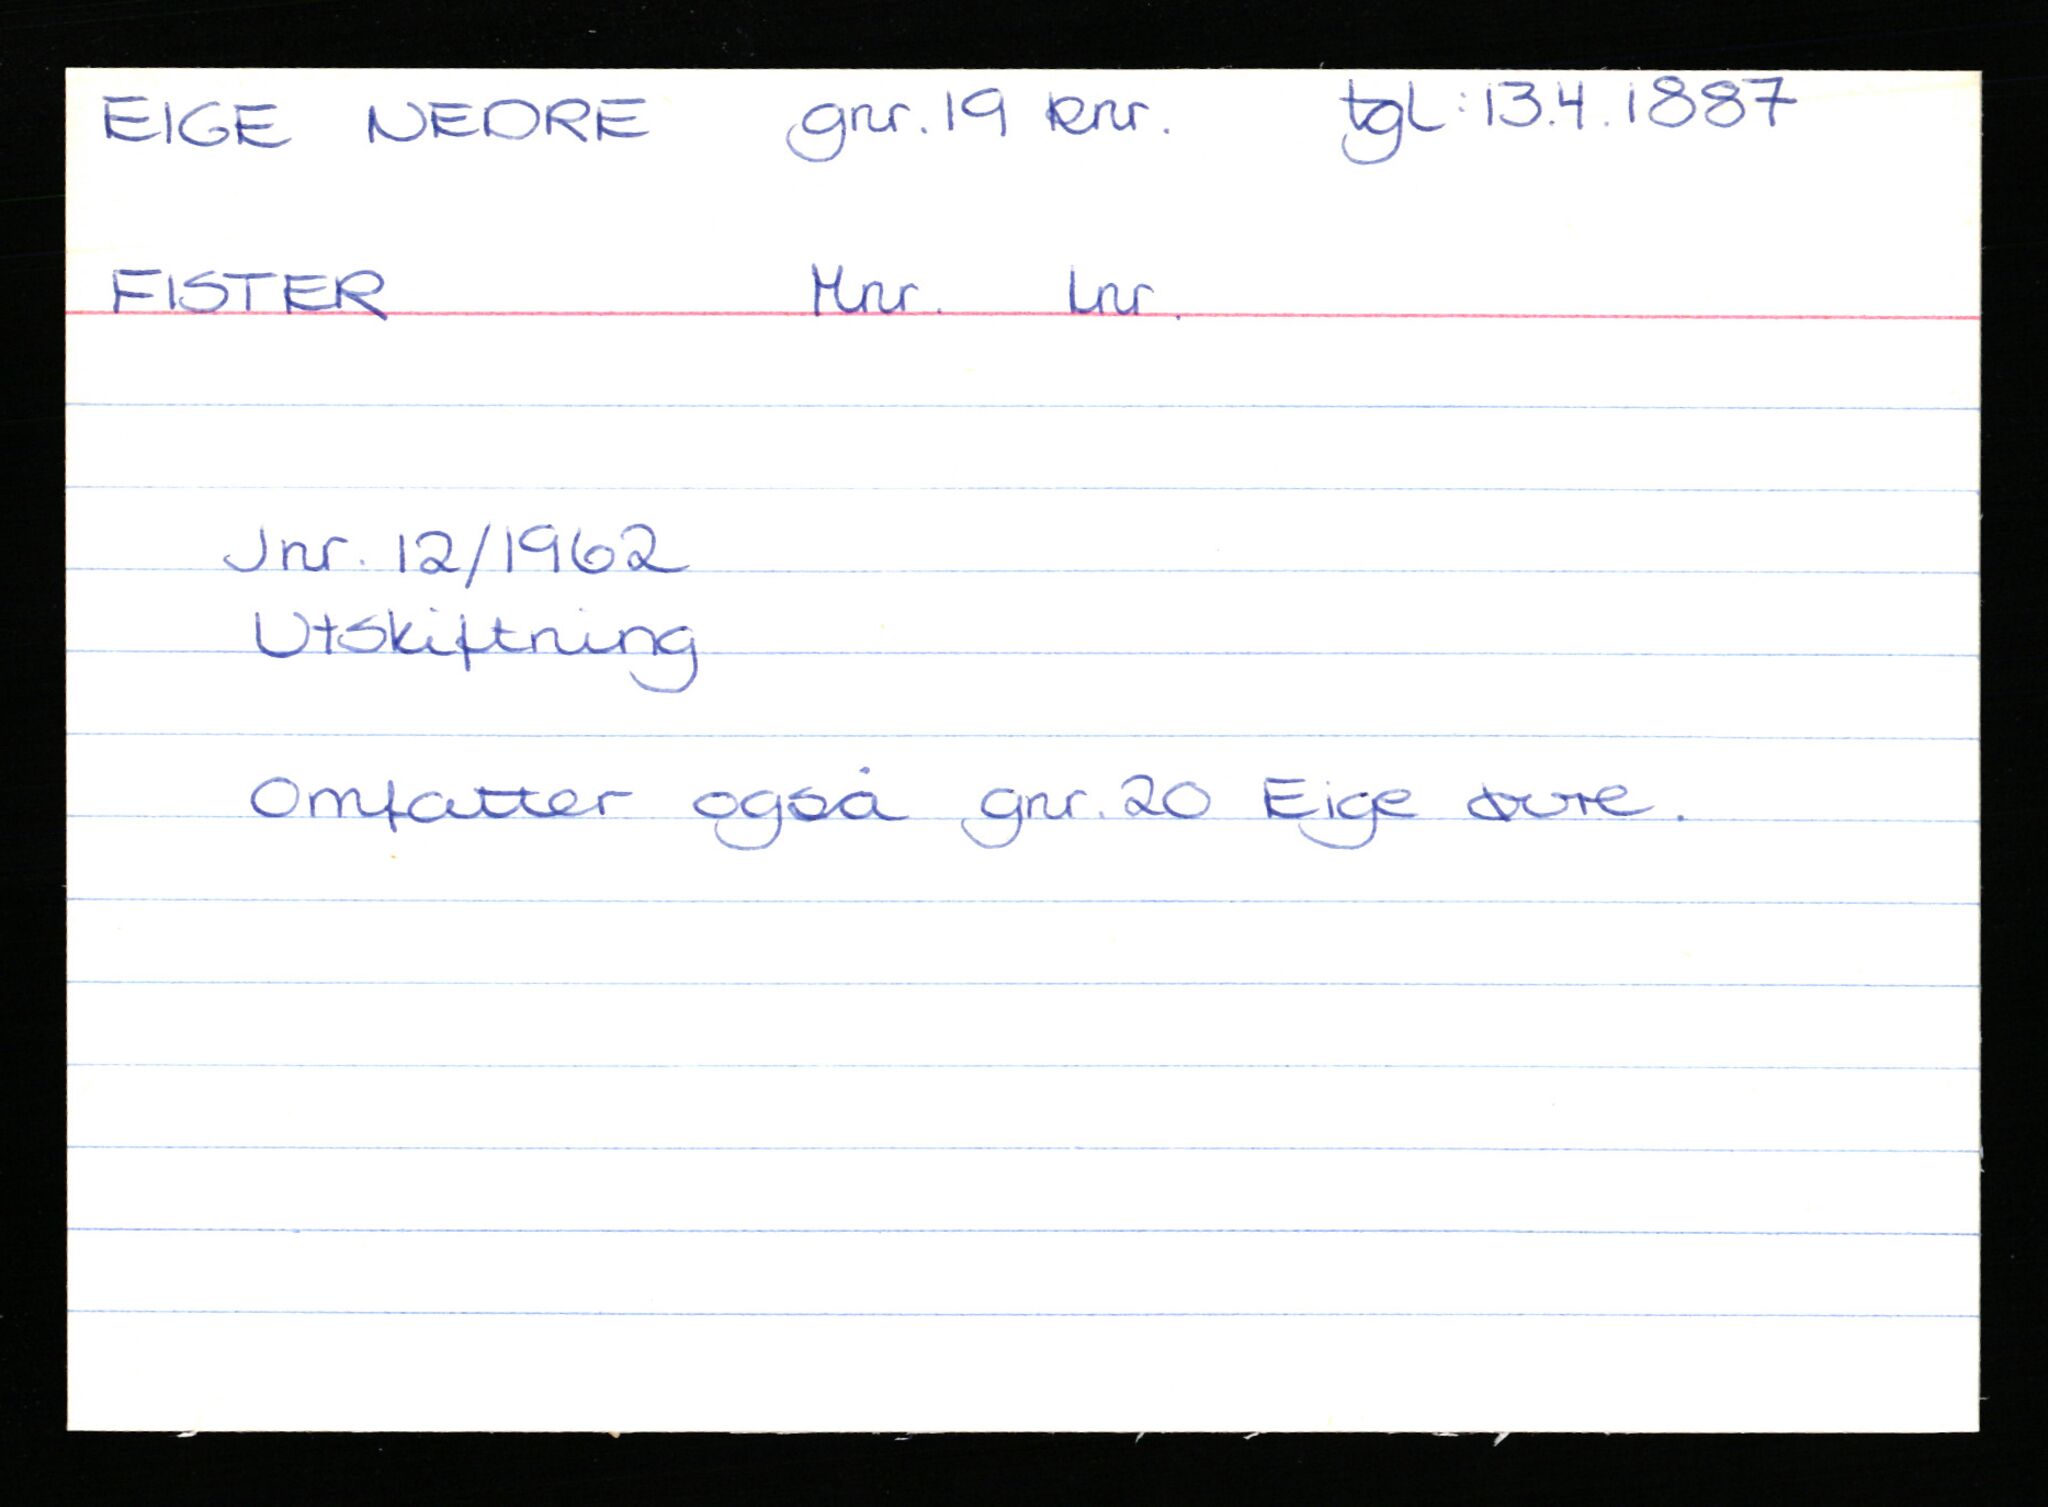 EIGE NEDRE gnr. 19 bnr. tgl: 13.4.1887
FISTER Mnr. Lnr.
Jnr. 12/1962
Utskiftning
Omfatter også gnr. 20 Eige øvre.